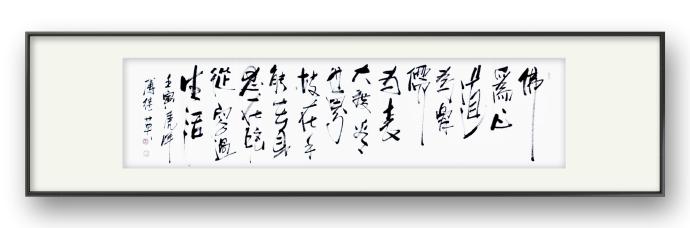 佛
為心
道
為骨
儒
為表
大度看
世界
技在手
能在身
思在腦
從容過
生活
壬寅虎年